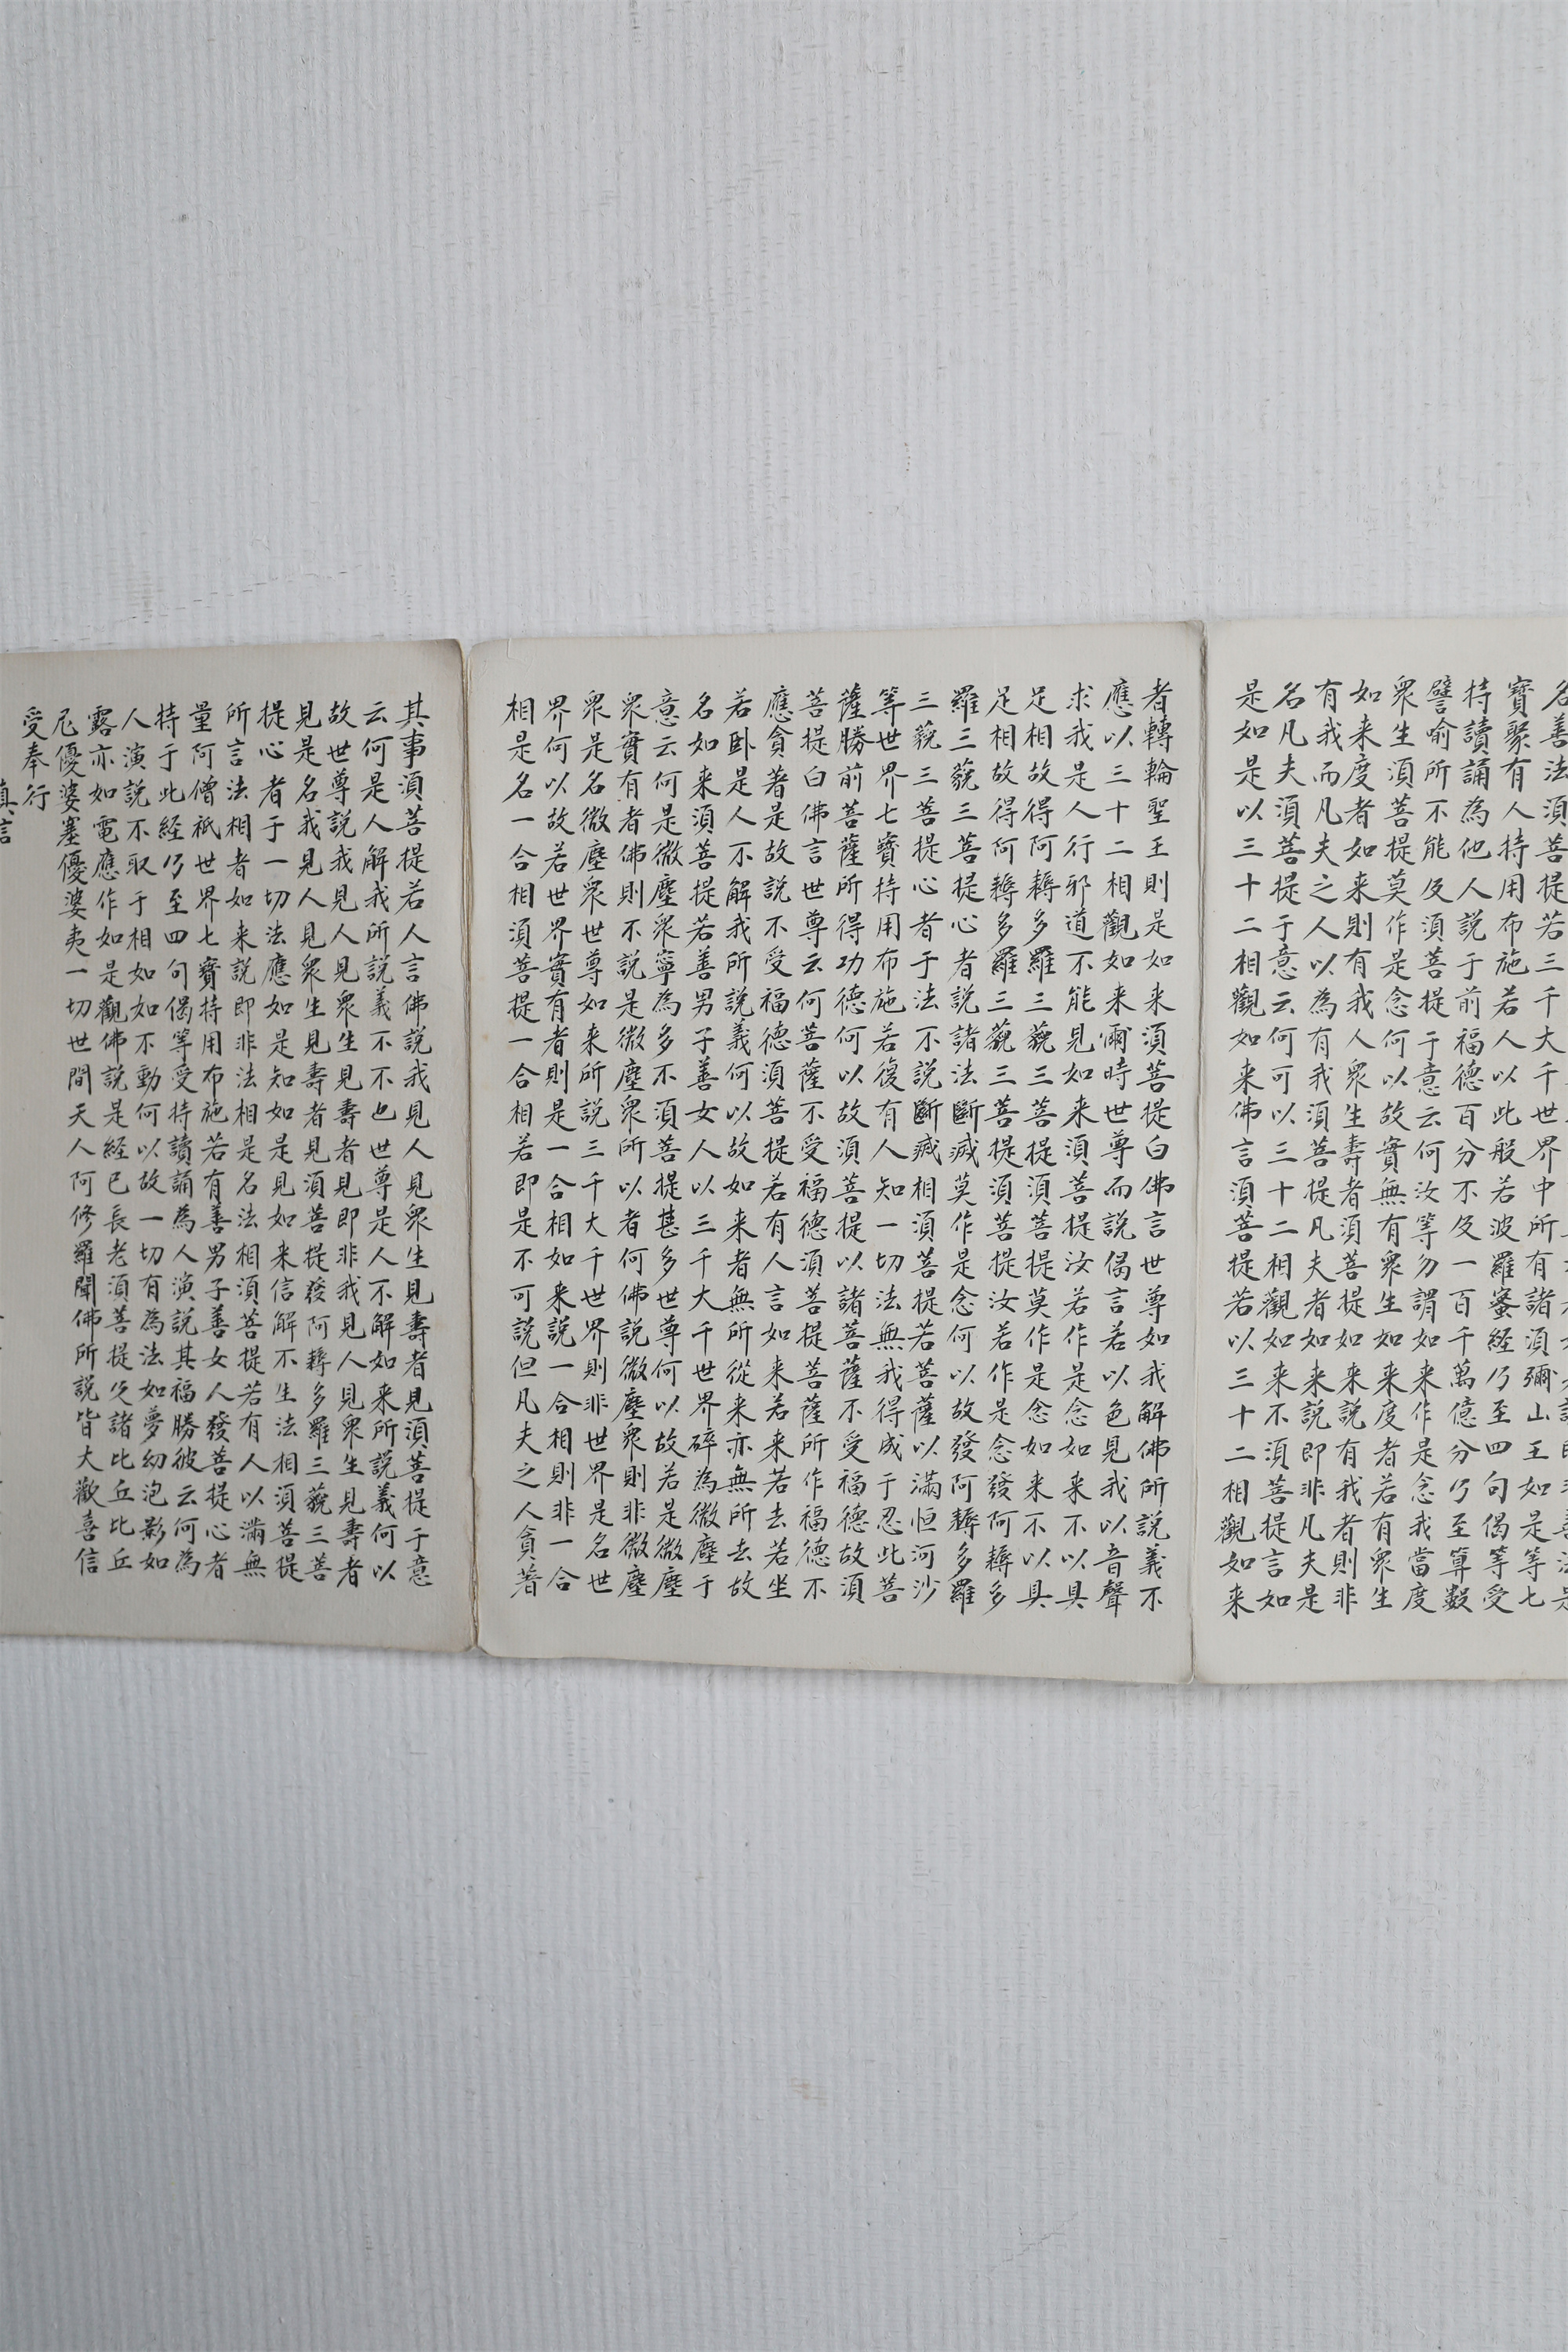 名善法須菩提若三千大千世界中所有諸須彌山王如是等七
寶聚有人持用布施若人以此般若波羅蜜経乃至四句偈等受
持讀誦為他人説于前福德百分不及一百千萬億分乃至筭數
譬喻所不能及須菩提于意云何汝等勿謂如来作是念我當度
衆生須菩提莫作是念何以故實無有衆生如来度者若有衆生
如来度者如来則有我人衆生壽者須菩提如来説有我者則非
有我而凡夫之人以為有我須菩提凡夫者如来説即非凡夫是
名凡夫須菩提于意云何可以三十二相觀如来不須菩提言如
是如是以三十二相觀如来佛言須菩提若以三十二相觀如来
者轉輪聖王則是如来須菩提白佛言世尊如我解佛所説義不
應以三十二相觀如来爾時世尊而説偈言若以色見我以音聲
求我是人行邪道不能見如来須菩提汝若作是念如来不以具
足相故得阿耨多羅三藐三菩提須菩提莫作是念如来不以具
足相故得阿耨多羅三藐三菩提須菩提汝若作是念發阿耨多
羅三藐三菩提心者説諸法斷滅莫作是念何以故發阿耨多羅
三藐三菩提心者于法不説斷滅相須菩提若菩薩以滿恒河沙
等世界七寶持用布施若復有人知一切法無我得成于忍此菩
薩勝前菩薩所得功德何以故須菩提以諸菩薩不受福德故須
菩提白佛言世尊云何菩薩不受福德須菩提菩薩所作福德不
應貪著是故説不受福德須菩提若有人言如来若来若去若坐
若卧是人不解我所説義何以故如来者無所從来亦無所去故
名如来須菩提若善男子善女人以三千大千世界碎為微塵于
意云何是微塵衆寧為多不須菩提甚多世尊何以故若是微塵
衆實有者佛則不説是微塵衆所以者何佛説微塵衆則非微塵
衆是名微塵衆世尊如来所説三千大千世界則非世界是名世
界何以故若世界實有者則是一合相如来説一合相則非一合
相是名一合相須菩提一合相若即是不可説但凡夫之人貪著
其事須菩提若人言佛説我見人見衆生見壽者見須菩提于意
云何是人解我所説義不不也世尊是人不解如来所説義何以
故世尊説我見人見衆生見壽者見即非我見人見衆生見壽者
見是名我見人見衆生見壽者見須菩提發阿耨多羅三藐三菩
提心者于一切法應如是知如是見如来信解不生法相須菩提
所言法相者如来説即非法相是名法相須菩提若有人以滿無
量阿僧祇世界七寶持用布施若有善男子善女人發菩提心者
持于此経乃至四句偈等受持讀誦為人演説其福勝彼云何為
人演説不取于相如如不動何以故一切有為法如夢幻泡影如
露亦如電應作如是觀佛説是経已長老須菩提及諸比丘比丘
尼優婆塞優婆夷一切世間天人阿修羅聞佛所説皆大歡喜信
受奉行
真言